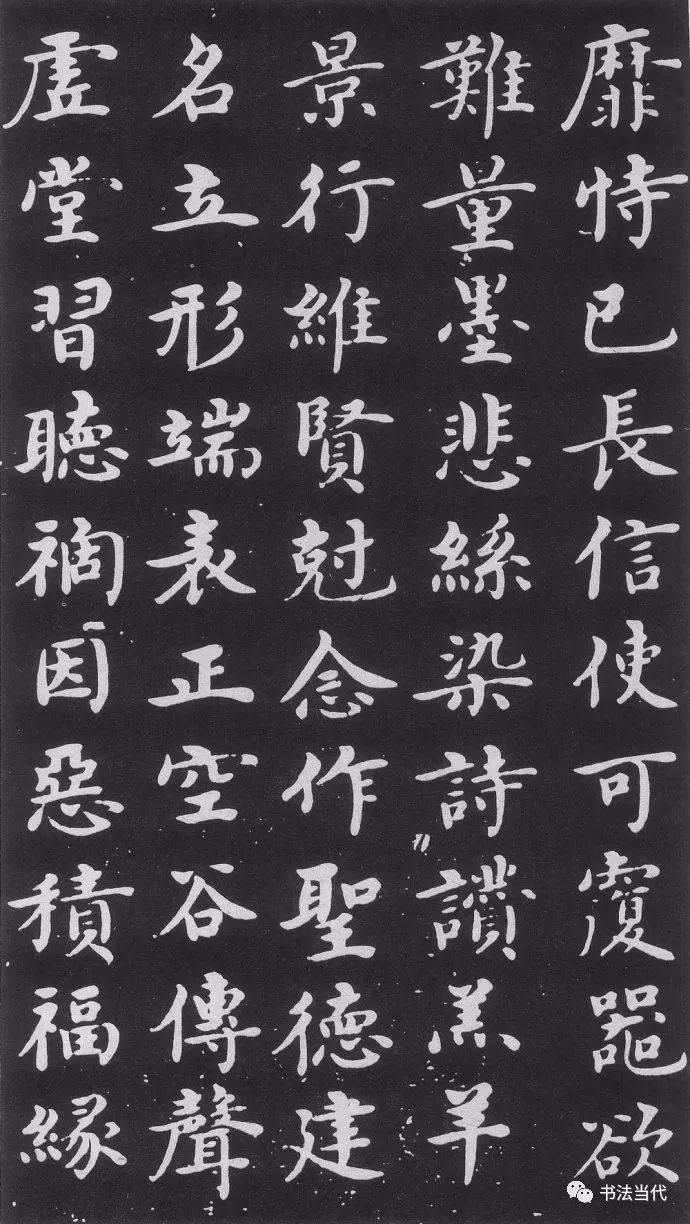 靡恃己長信使可覆器欲
難量墨悲絲染詩讚羔羊
景行維賢尅念作聖德建
名立形端表正空谷傳聲
虛堂習聽禍因惡積福緣
书法当代